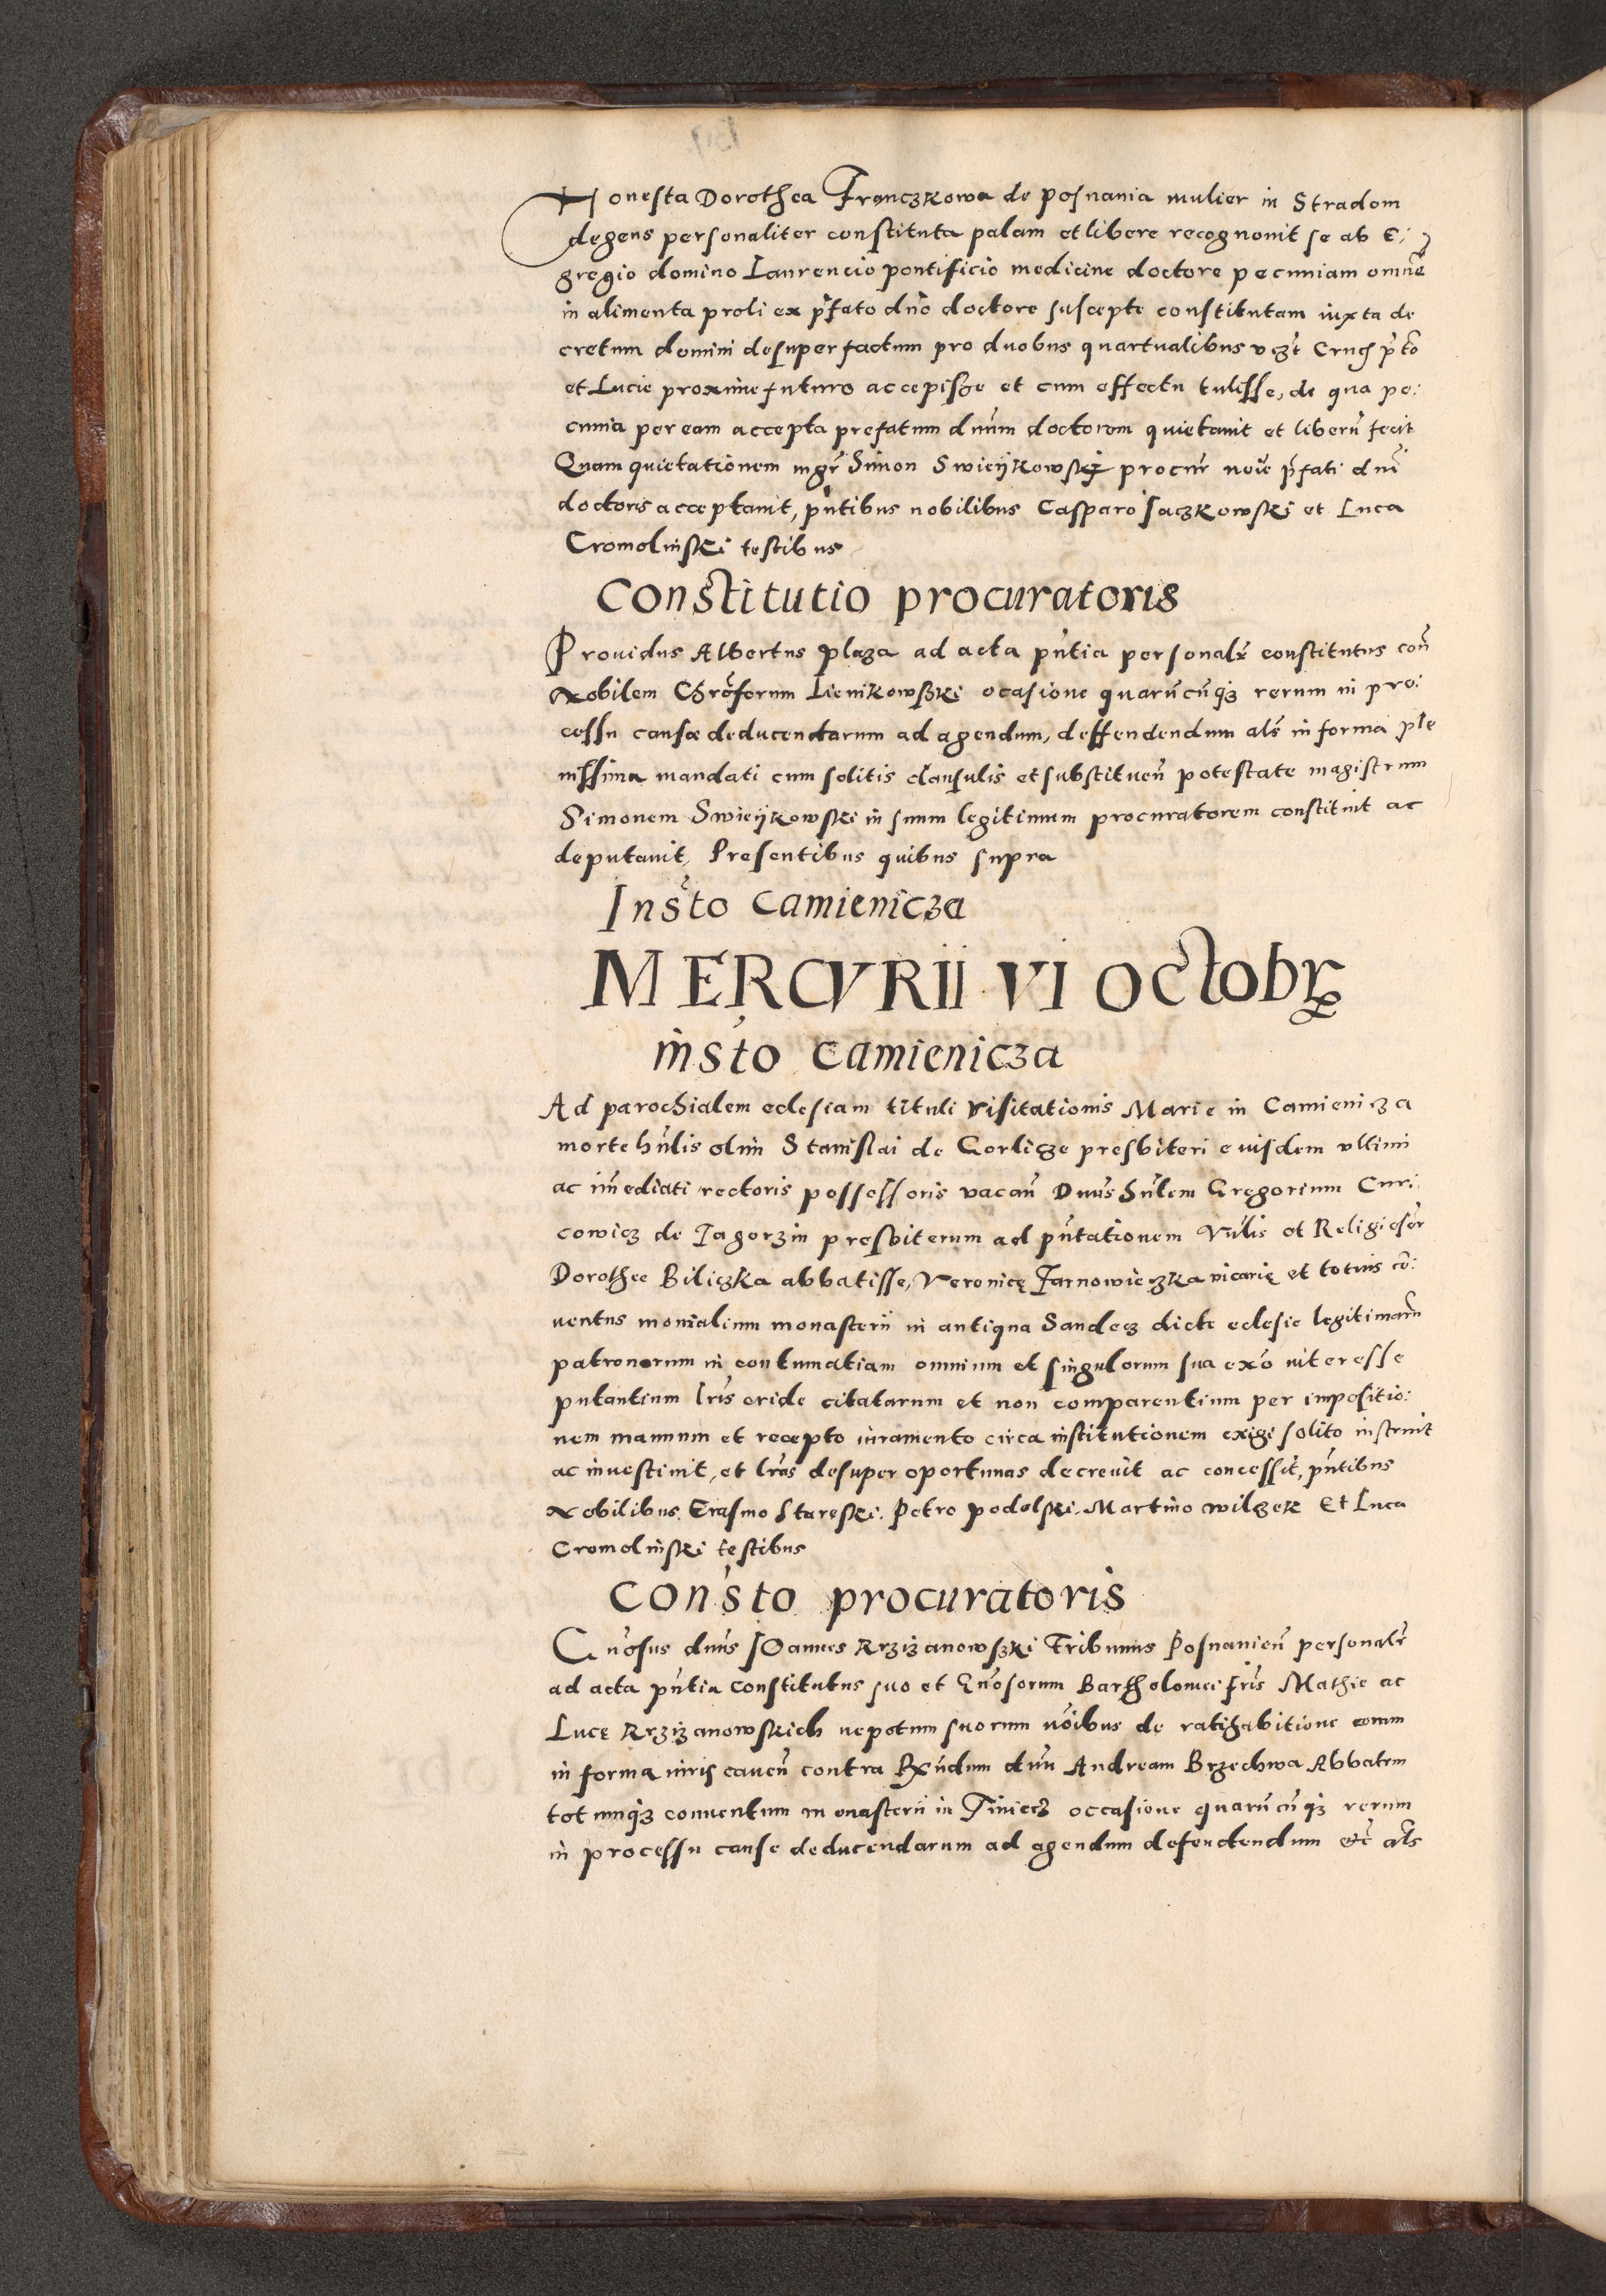 Honesta Dorothea Franczkowa de posnania mulier in Stradom
degens personaliter constituta palam et libere recognouit se ab E:
gregio domino Laurencio pontificio medicine doctore pecuniam omnē
in alimenta proli ex p̄fato dn̄o doctore suscepte constitutam iuxta de
cretum domini desuper factum pro duobus quartualibus vꝫt Crucꝭ p̄to
et Lucie proxime futuro accepisse et cum effectu tulisse, de qua pe:
cunia per eam accepta prefatum dnūm doctorem quietauit et liberū fecit
Quam quietationem mgr̄ Simon Swieÿkowskj procur̄ noīe p̄fati dnī
doctoris acceptauit, pn̄tibus nobilibus Casparo Jaczkowski et Luca
Cromolinski testibus
Constitutio procuratoris
Prouidus Albertus plaza ad acta pn̄tia personalr̄ constitutus con̄
Nobilem Chrōforum Lienikowszki ocasione quarūcūqꝫ rerum in pro:
cessu causæ deducendarum ad agendum, deffendendum als̄ in forma ple
nissima mandati cum solitis clausulis et substituen̄ potestate magistrum
Simonem Swieÿkowski in suum legitimum procuratorem constituit ac
deputauit, Presentibus quibus supra
Insto Camienicza
MERCVRII VI Octobrꝝ
insto Camienicza
Ad parochialem eclesiam tituli visitationis Marie in Camienicza
morte hn̄lis olim Stanislai de Gorlicze presbiteri eiusdem vltimi
ac im̄ediati rectoris possessoris vacan̄ Dnūs hn̄lem Gregorium Curi
cowicz de Jagorzin presbiterum ad pn̄tationem Vn̄lis et Religiosar̄
Dorothee Biliczka abbatisse, Veronicę Tarnowieczka vicarię et totius cō:
uentus monialium monasterii in antiqua Sandecz dicte eclesie legitimarū
patronorum in contumatiam omnium et singulorum sua exō interesse
putantium lr̄is eride citatarum et non comparentium per impositio:
nem manuum et recepto iuramento circa institutionem exigi solito instruit
ac inuestiuit, et lr̄as desuper oportunas decreuit ac concessit, pn̄tibus
Nobilibus. Erasmo Stareski. Petro podolski. Martino wilczek Et Luca
Cromolinski testibus
Consto procuratoris
Gnōsus dnūs JOannes Krzizanowszki Tribunus Posnanien̄ personalr̄
ad acta pn̄tia constitutus suo et Gn̄osorum Bartholomei fr̄is Mathie ac
Lucę Krzizanowskich nepotum suorum nōibus de ratihabitione eorum
in forma iuris cauen̄ contra Rx̄ndum dnū Andream Brzechwa Abbatem
totumqꝫ conuentum monasterii in Tiniecz occasione quarūcūqꝫ rerum
in processu cause deducendarum ad agendum defendendum etc̄ als̄